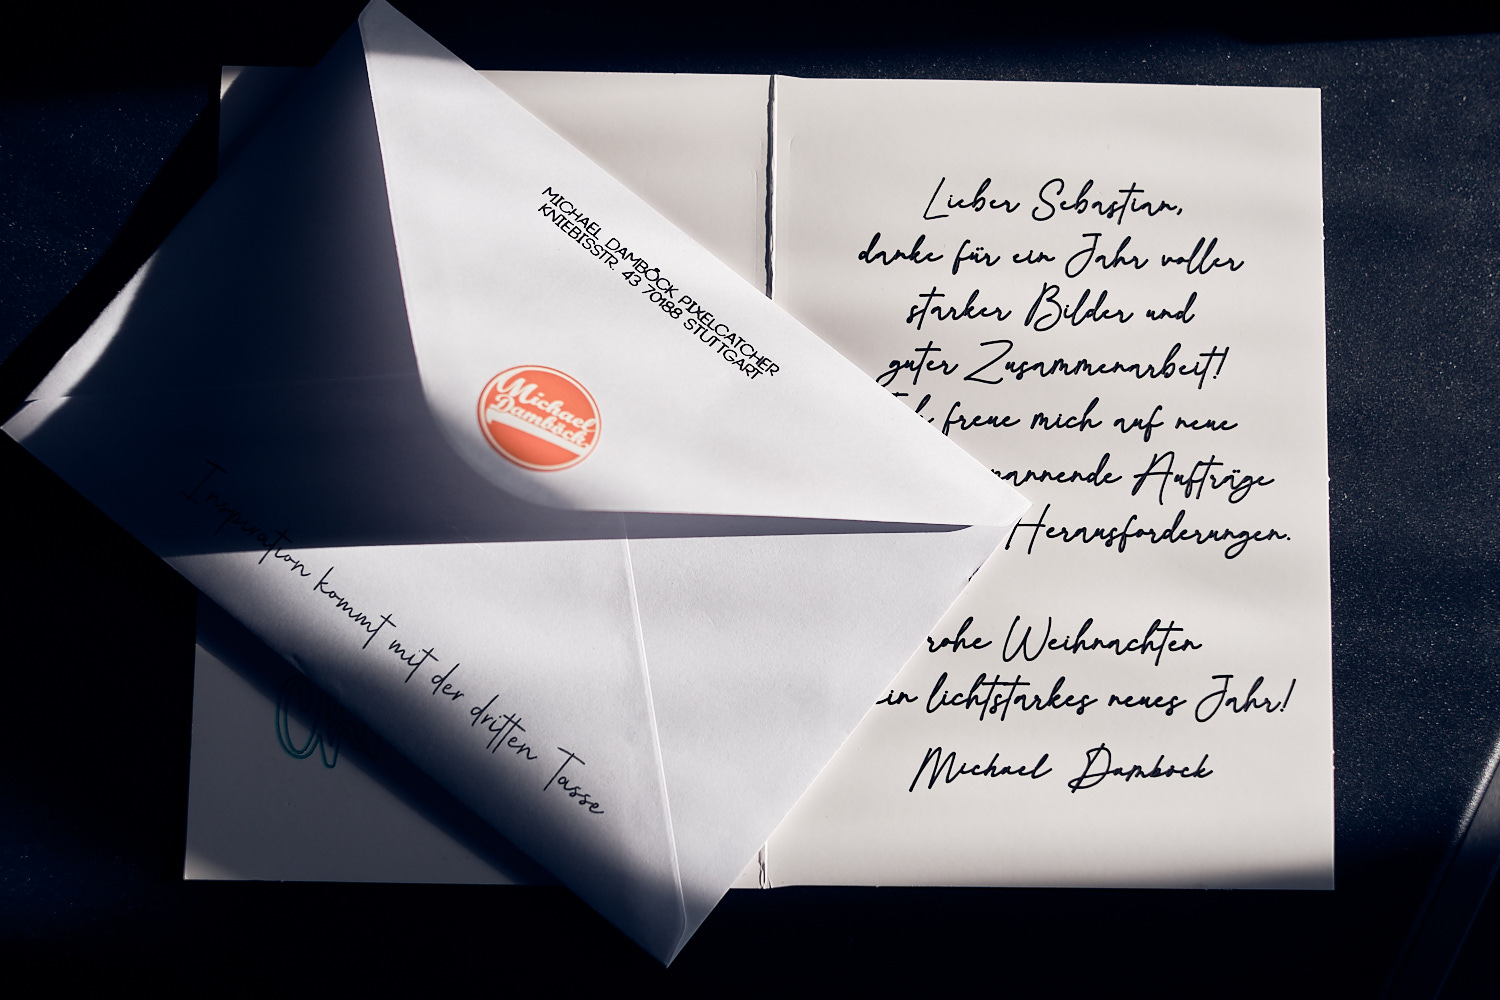 MICHAEL DAMBÖCK PIXELCATCHER
KNIEBISSTR. 43 70188 STUTTGART
Michael
Damböck
Inspiration kommt mit der dritten Tasse
Lieber Sebastian,
danke für ein Jahr voller
starker Bilder und
guter Zusammenarbeit!
freue mich auf neue
Aufträge
Herausforderungen.
Weihnachten
lichtstarkes neues Jahr!
Michael Damböck